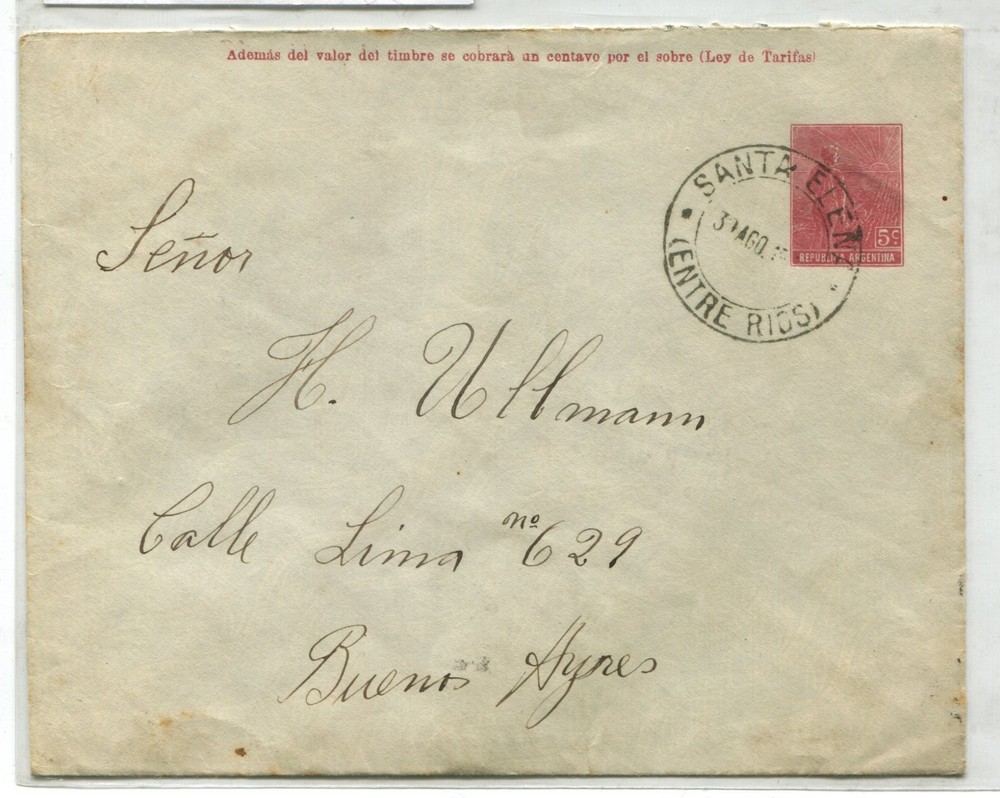 Además del valor del timbre se cobrarà un centavo por el sobre (Ley de Tarifas)
5c
REPUBLICA ARGENTINA
SANTA ELENA
AGO.
(ENTRE RIOS)
Señor
H. Ullmann
Calle Lima nº 629
Buenos Ayres